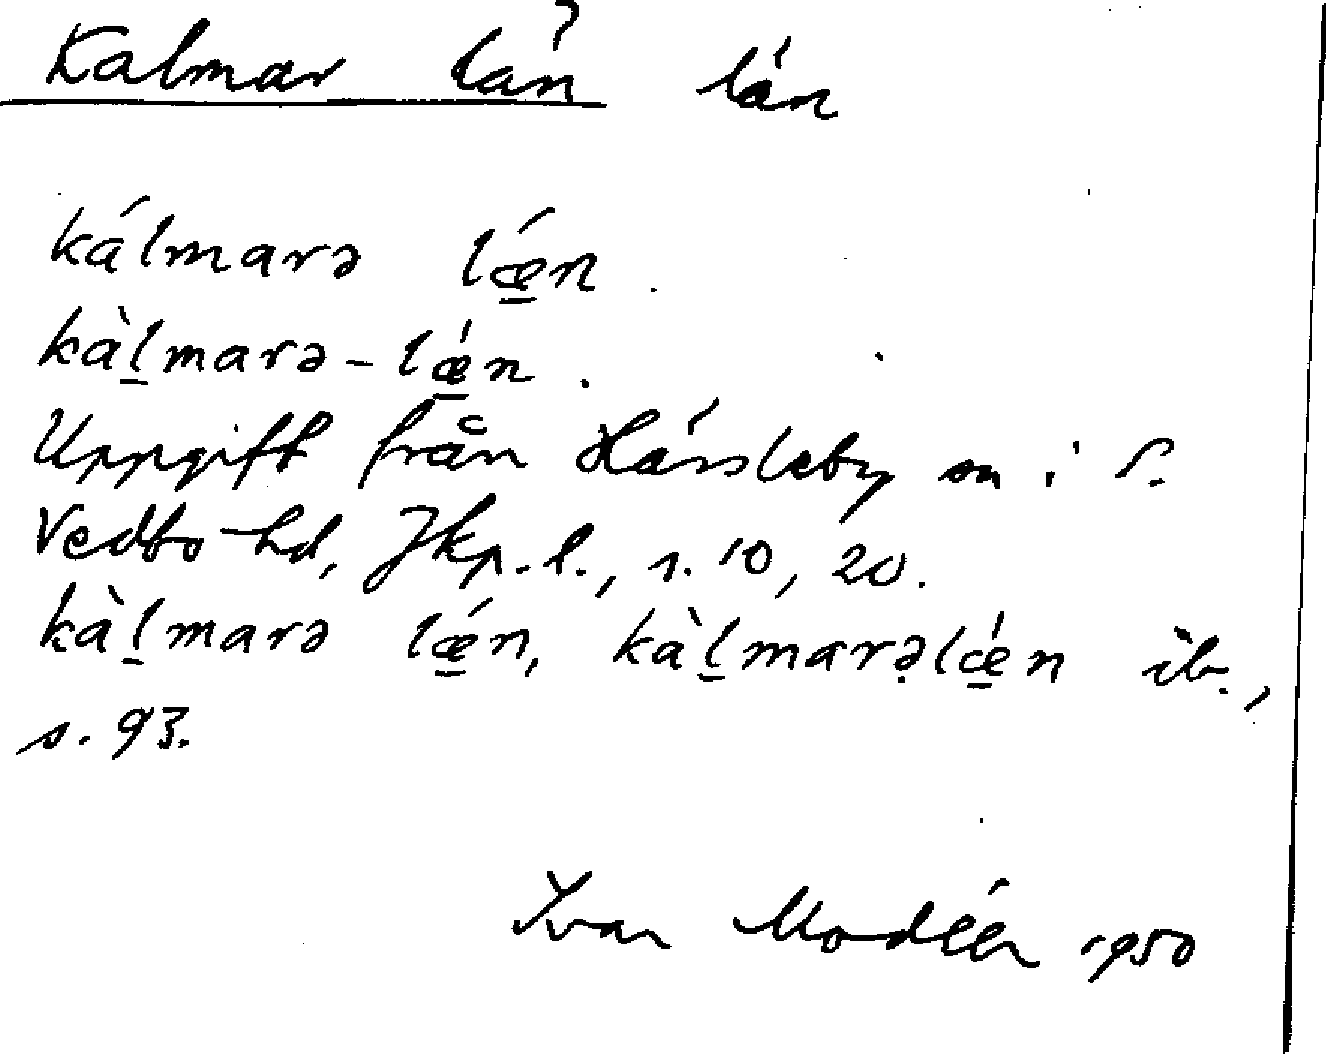 Kalmar län län
kálmarə lǽ̱n.
kàḻmarə-lǽ̱n.
Uppgift från i S.
Vedbo hd, Jkp.l., s. 10, 20.
kàḻmarə lǽ̱n, kàḻmarə̣lǽ̱n ib.,
s. 93.
Ivar Modéer 1950